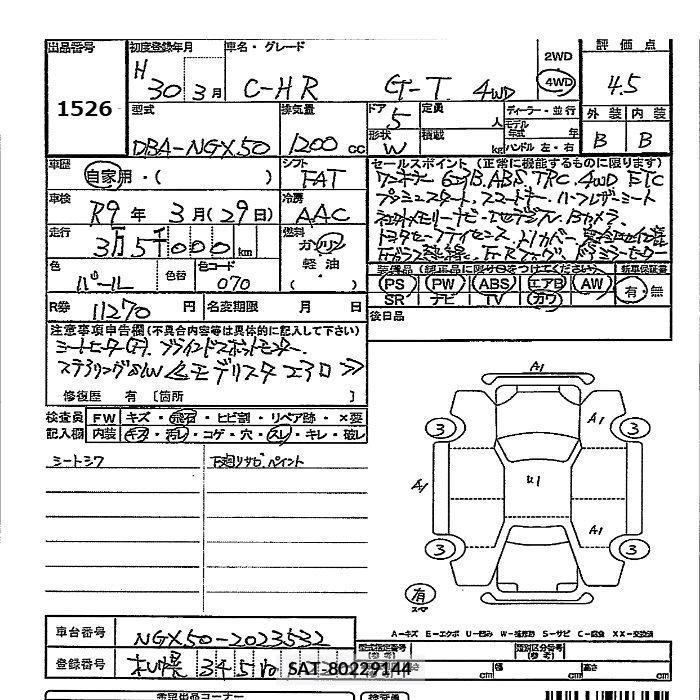 出品番号 初度登録年月 車名・グレード 2WD 評価点
1526
H 30 3月 C-HR G-T 4WD 4WD 4.5
型式 排気量 ドア 定員 ディーラー・並行 外装 内装
5 人 モデル年式 年
DBA-NGX50 1200 cc 形状 W 積載 kg ハンドル 左・右 B B
車歴 シフト セールスポイント (正常に機能するものに限ります)
自家用・( ) FAT ワンオーナー ABS TRC 4WD ETC
車検 冷房 プッシュスタート スマートキー ハーフレザーシート
R9年 3月(29日) AAC Bカメラ
走行 燃料
3万5千000km ガソリン
色 色替 色コード 軽油
パール 070 ( )
装備品 (純正品に限り○をつけてください) 新車保証書
PS PW ABS エアB AW 有・無
SR ナビ TV カワ
R券 11270円 名変期限 月 日 後日品
注意事項申告欄(不具合内容等は具体的に記入して下さい)
シートヒーター(F). ブラインドスポットモニター.
ステアリングSW 《モデリスタエアロ》
修復歴 有 [箇所 ]
検査員 FW キズ・飛石・ヒビ割・リペア跡・×要
記入欄 内装 キズ・汚レ・コゲ・穴・スレ・キレ・破レ
シートシワ 下廻リサビ.ペイント
A1
A1
3 3
A1 U1
A1
3 3
有
スペア
A-キズ E-エクボ U-凹み W-補修跡 S-サビ C-腐食 XX-交換済
車台番号 NGX50-2023532
型式指定番号(参考) 類別区分番号(参考)
登録番号 札幌 345 SAT-80229144
長さ cm 幅 cm 高さ cm
希望出品コーナー 検査員